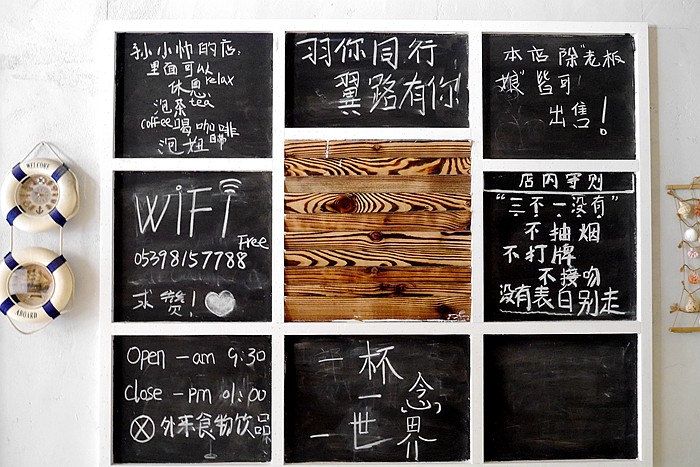 孙小帅的店:
里面可以
休息relax
泡茶tea
coffee喝咖啡
泡妞
羽你同行
翼路有你
本店除"老板
娘"皆可
出售!
WiFi
Free
05398157788
求赞!
店内守则
"三不一没有"
不抽烟
不打牌
不接吻
没有表白别走
Open — am 9:30
Close — pm 01:00
外来食物饮品
一杯
一念
一世界
WELCOME
ABOARD